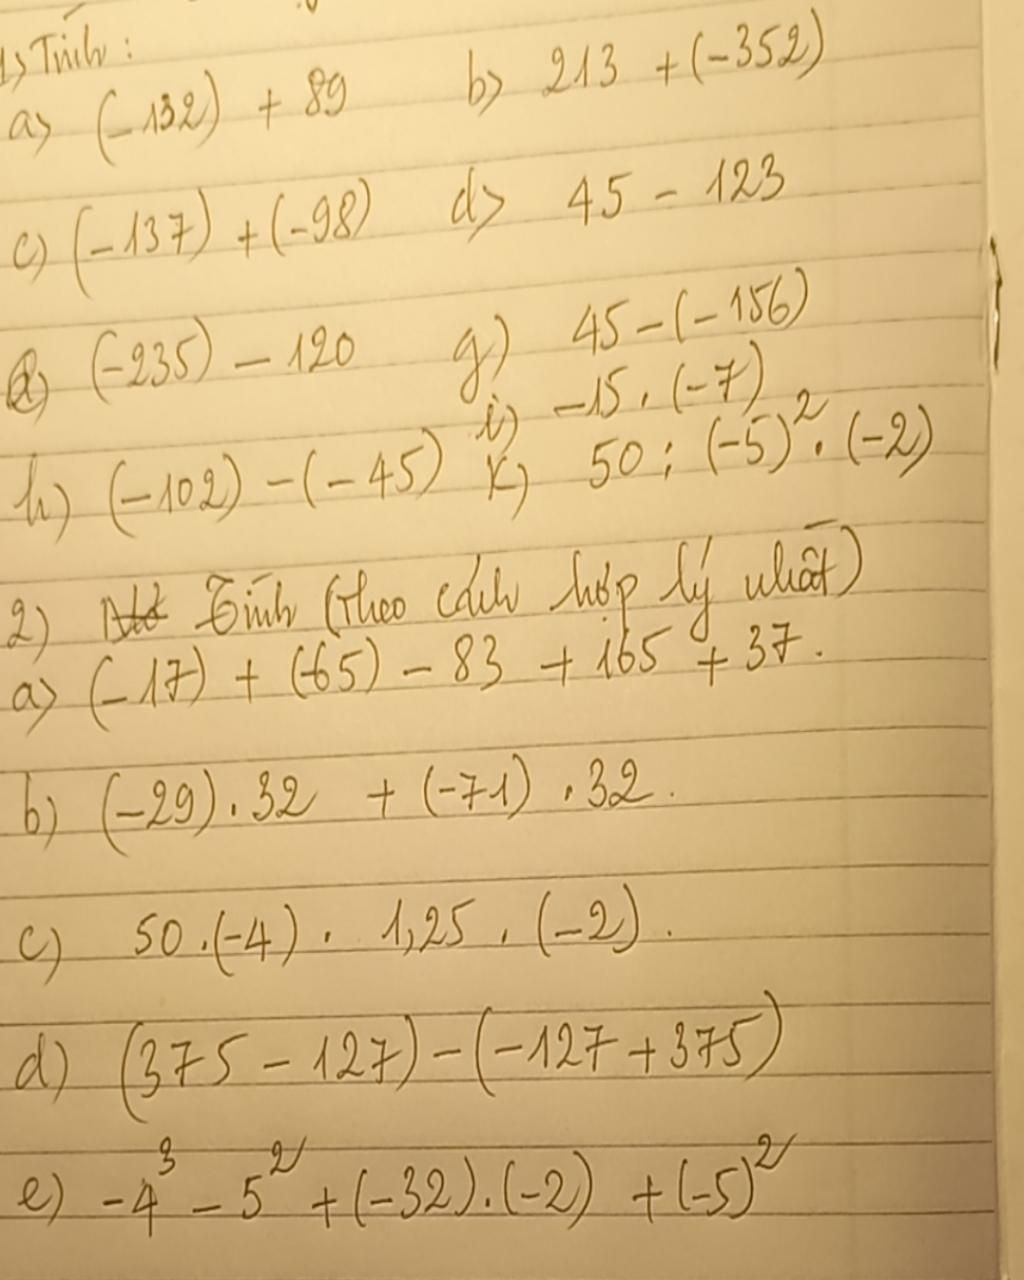 1) Tính :
a) (-132) + 89 b) 213 + (-352)
c) (-137) + (-98) d) 45 - 123
e) (-235) - 120 g) 45 - (-156)
i) -15 . (-7)
h) (-102) - (-45) k) 50 : (-5)² . (-2)
2) Tính (theo cách hợp lý nhất)
a) (-17) + (-65) - 83 + 165 + 37.
b) (-29) . 32 + (-71) . 32.
c) 50 . (-4) . 1,25 . (-2).
d) (375 - 127) - (-127 + 375)
e) -4³ - 5² + (-32) . (-2) + (-5)²